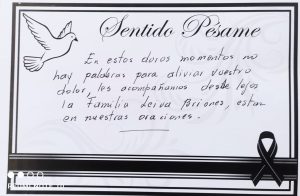 Sentido Pésame
En estos duros momentos no
hay palabras para aliviar vuestro
dolor, les acompañamos desde lejos
la Familia Leiva Porciones, estan
en nuestras oraciones.